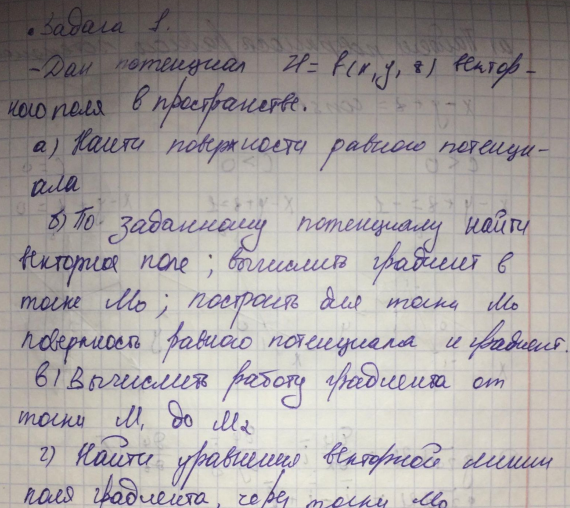 • Задача 1.
- Дан потенциал U = f(x, y, z) вектор-
ного поля в пространстве.
а) Найти поверхности равного потенци-
ала
б) По заданному потенциалу найти
векторное поле; вычислить градиент в
точке М₀; построить для точки М₀
поверхность равного потенциала и градиент.
в) Вычислить работу градиента от
точки М₁ до М₂
г) Найти уравнения векторной линии
поля градиента, через точки М₀